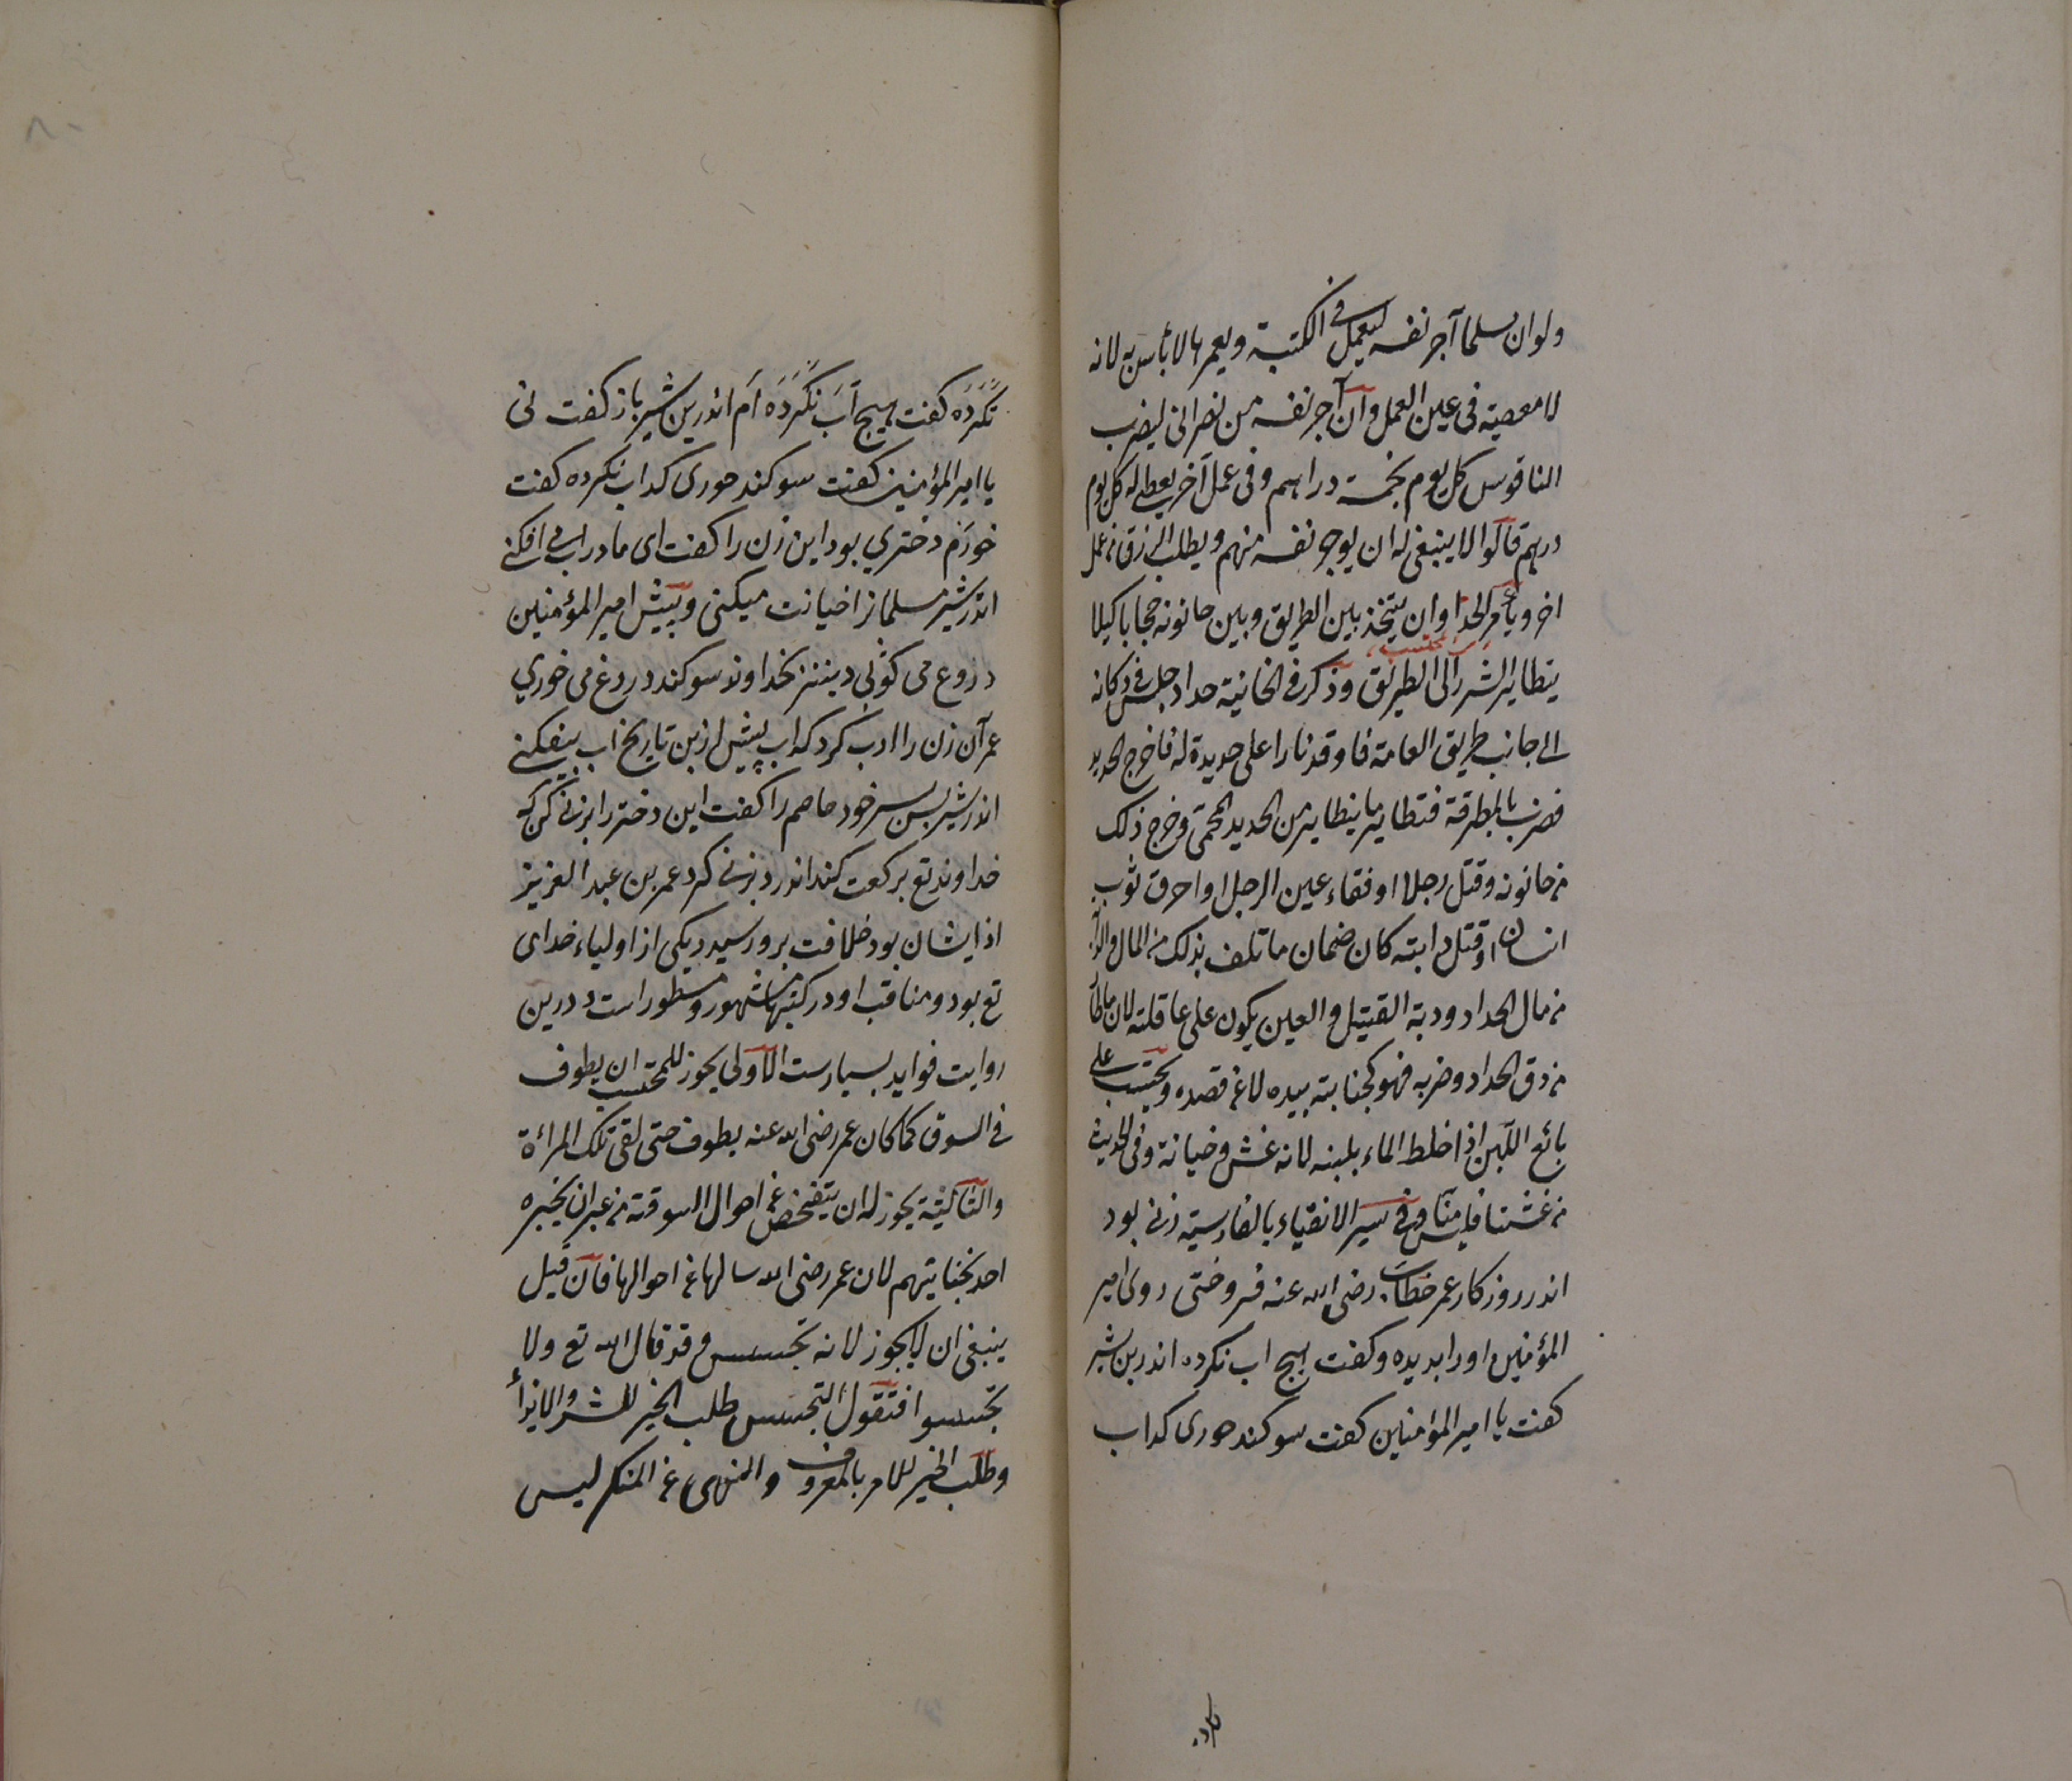 ولوان مسلما آجر نفسه ليعمل في الكنيسة ويعمرها لا بأس به لانه
لا معصية فى عين العمل وان آجر نفسه من نصرانى ليضرب
الناقوس كل يوم بخمسة دراهم وفى عمل آخر يعطى له كل يوم
درهم قالوا لا ينبغى له ان يوجر نفسه منهم ويطلب الرزق من عمل
اخر ويأمر الحداد ان يتخذ بين الطريق وبين حانوته حجابا كيلا
يتطاير الشرر الى الطريق وذكر في الخانية حداد جلس في دكانه
الى جانب طريق العامة فاوقد نارا على حديدة له فاخرج الحديد
فضرب بالمطرقة فتطاير ما يتطاير من الحديد المحمى وخرج ذلك
من حانوته وقتل رجلا او فقاء عين الرجل او احرق ثوب
انسان او قتل دابته كان ضمان ما تلف بذلك من المال والدابة
من مال الحداد ودية القتيل والعين يكون على عاقلته لان ما طار
من دق الحداد وضربه فهو كجنايته بيده لا عن قصده ويحتسب على
بائع اللبن اذا خلط الماء بلبنه لانه غش وخيانة وفى الحديث
من غشنا فليس منا وفى سير الاتقياء بالفارسية زنى بود
اندر روزكار عمر خطاب رضى الله عنه فروختى روى امير
المؤمنين اورا بديده وكفت هيج اب نكرده اندرين شير
كفت يا امير المؤمنين كفت سوكند خورى كداب
نكرده
نكرده كفت هيج آب نكرده ام اندرين شير باز كفت نى
يا امير المؤمنين كفت سوكند خورى كداب نكرده كفت
خورم دختري بود اين زن را كفت اى مادر اب مى افكنى
اندر شير مسلمانرا خيانت ميكنى وپيش امير المؤمنين
دروغ مى كوئى بخداوند سوكند دروغ مى خوري
عمر آن زن را ادب كرد كه اب پيش ازين تاريخ اب بيفكنى
اندر شير پس پسر خود عاصم را كفت اين دختر را بزنى كن كه
خداوند تع بركت كند اندرو بزنى كرد عمر بن عبد العزيز
از ايشان بود خلافت برو رسيد ويكى از اولياء خداى
تع بود ومناقب او در كتبها مشهور ومسطور است ودرين
روايت فوايد بسيارست الاولى يجوز للمحتسب ان يطوف
في السوق كما كان عمر رضى الله عنه يطوف حتى لقى تلك المراءة
والثانية يجوز له ان يتفحص عن احوال السوقة من غير ان يخبره
احد بخيانتهم لان عمر رضى الله سالها عن احوالها فان قيل
ينبغى ان لا يجوز لانه تجسس وقد قال الله تع ولا
تجسسوا فتقول التجسس طلب الخبر للشر والايذاء
وطلب الخبر للامر بالمعروف والنهى عن المنكر ليس